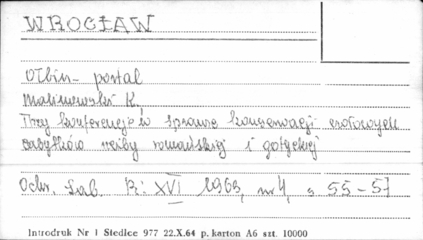 WROCŁAW
Ołbin - portal
Malinowski K.
Trzy konferencje w sprawie konserwacji czołowych
zabytków rzeźby romańskiej i gotyckiej
Ochr. Zab. R: XVI 1963, nr 4, s 55-57
Introdruk Nr 1 Siedlce 977 22.X.64 p. karton A6 szt. 10000